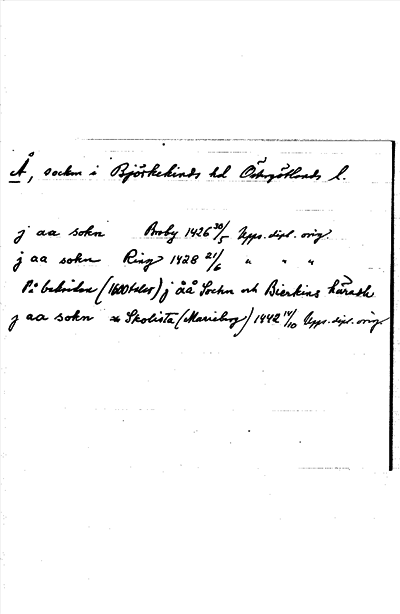 Å, socken i Björkekinds hd Östergötlands l.
j aa sokn Broby 1426 30/5 Upps. dipl. orig.
j aa sokn Ring 1428 21/6 " " "
På baksidan (1600talet) j åå Sochn och Bierkins häradh
j aa sokn Skolista (Marieborg) 1442 14/10 Upps. dipl. orig.